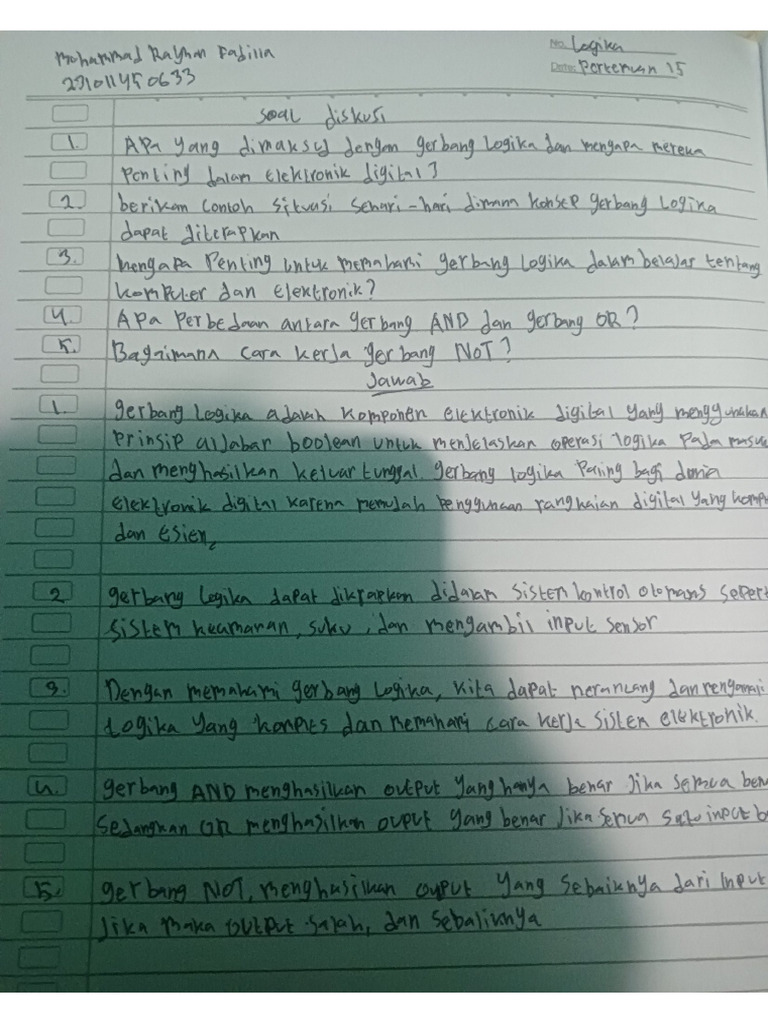 Mohammad Rayhan Fadilla
231011450633
No. Logika
Date: Pertemuan 15
soal diskusi
1. Apa yang dimaksud dengan gerbang logika dan mengapa mereka
penting dalam elektronik digital?
2. berikan contoh situasi sehari-hari dimana konsep gerbang logika
dapat diterapkan
3. mengapa penting untuk memahami gerbang logika dalam belajar tentang
komputer dan elektronik?
4. Apa perbedaan antara gerbang AND dan gerbang OR?
5. Bagaimana cara kerja gerbang NOT?
Jawab
1. gerbang logika adalah komponen elektronik digital yang menggunakan
prinsip aljabar boolean untuk menjelaskan operasi logika pada
dan menghasilkan keluar tunggal. gerbang logika paring bagi dunia
elektronik digital karena memudah penggunaan rangkaian digital yang
dan Esien,
2 gerbang logika dapat didalam sistem kontrol otomatis
sistem keamanan, suhu, dan mengambil input sensor
3. Dengan memahami gerbang logika, kita dapat merancang dan
Logika yang dan memahami cara kerja sistem elektronik.
4. gerbang AND menghasilkan output yang hanya benar jika semua
Sedangkan OR menghasilkan ouput yang benar jika input
5. gerbang NOT, menghasilkan ouput yang sebaiknya dari input
Jika maka output salah, dan sebaliknya